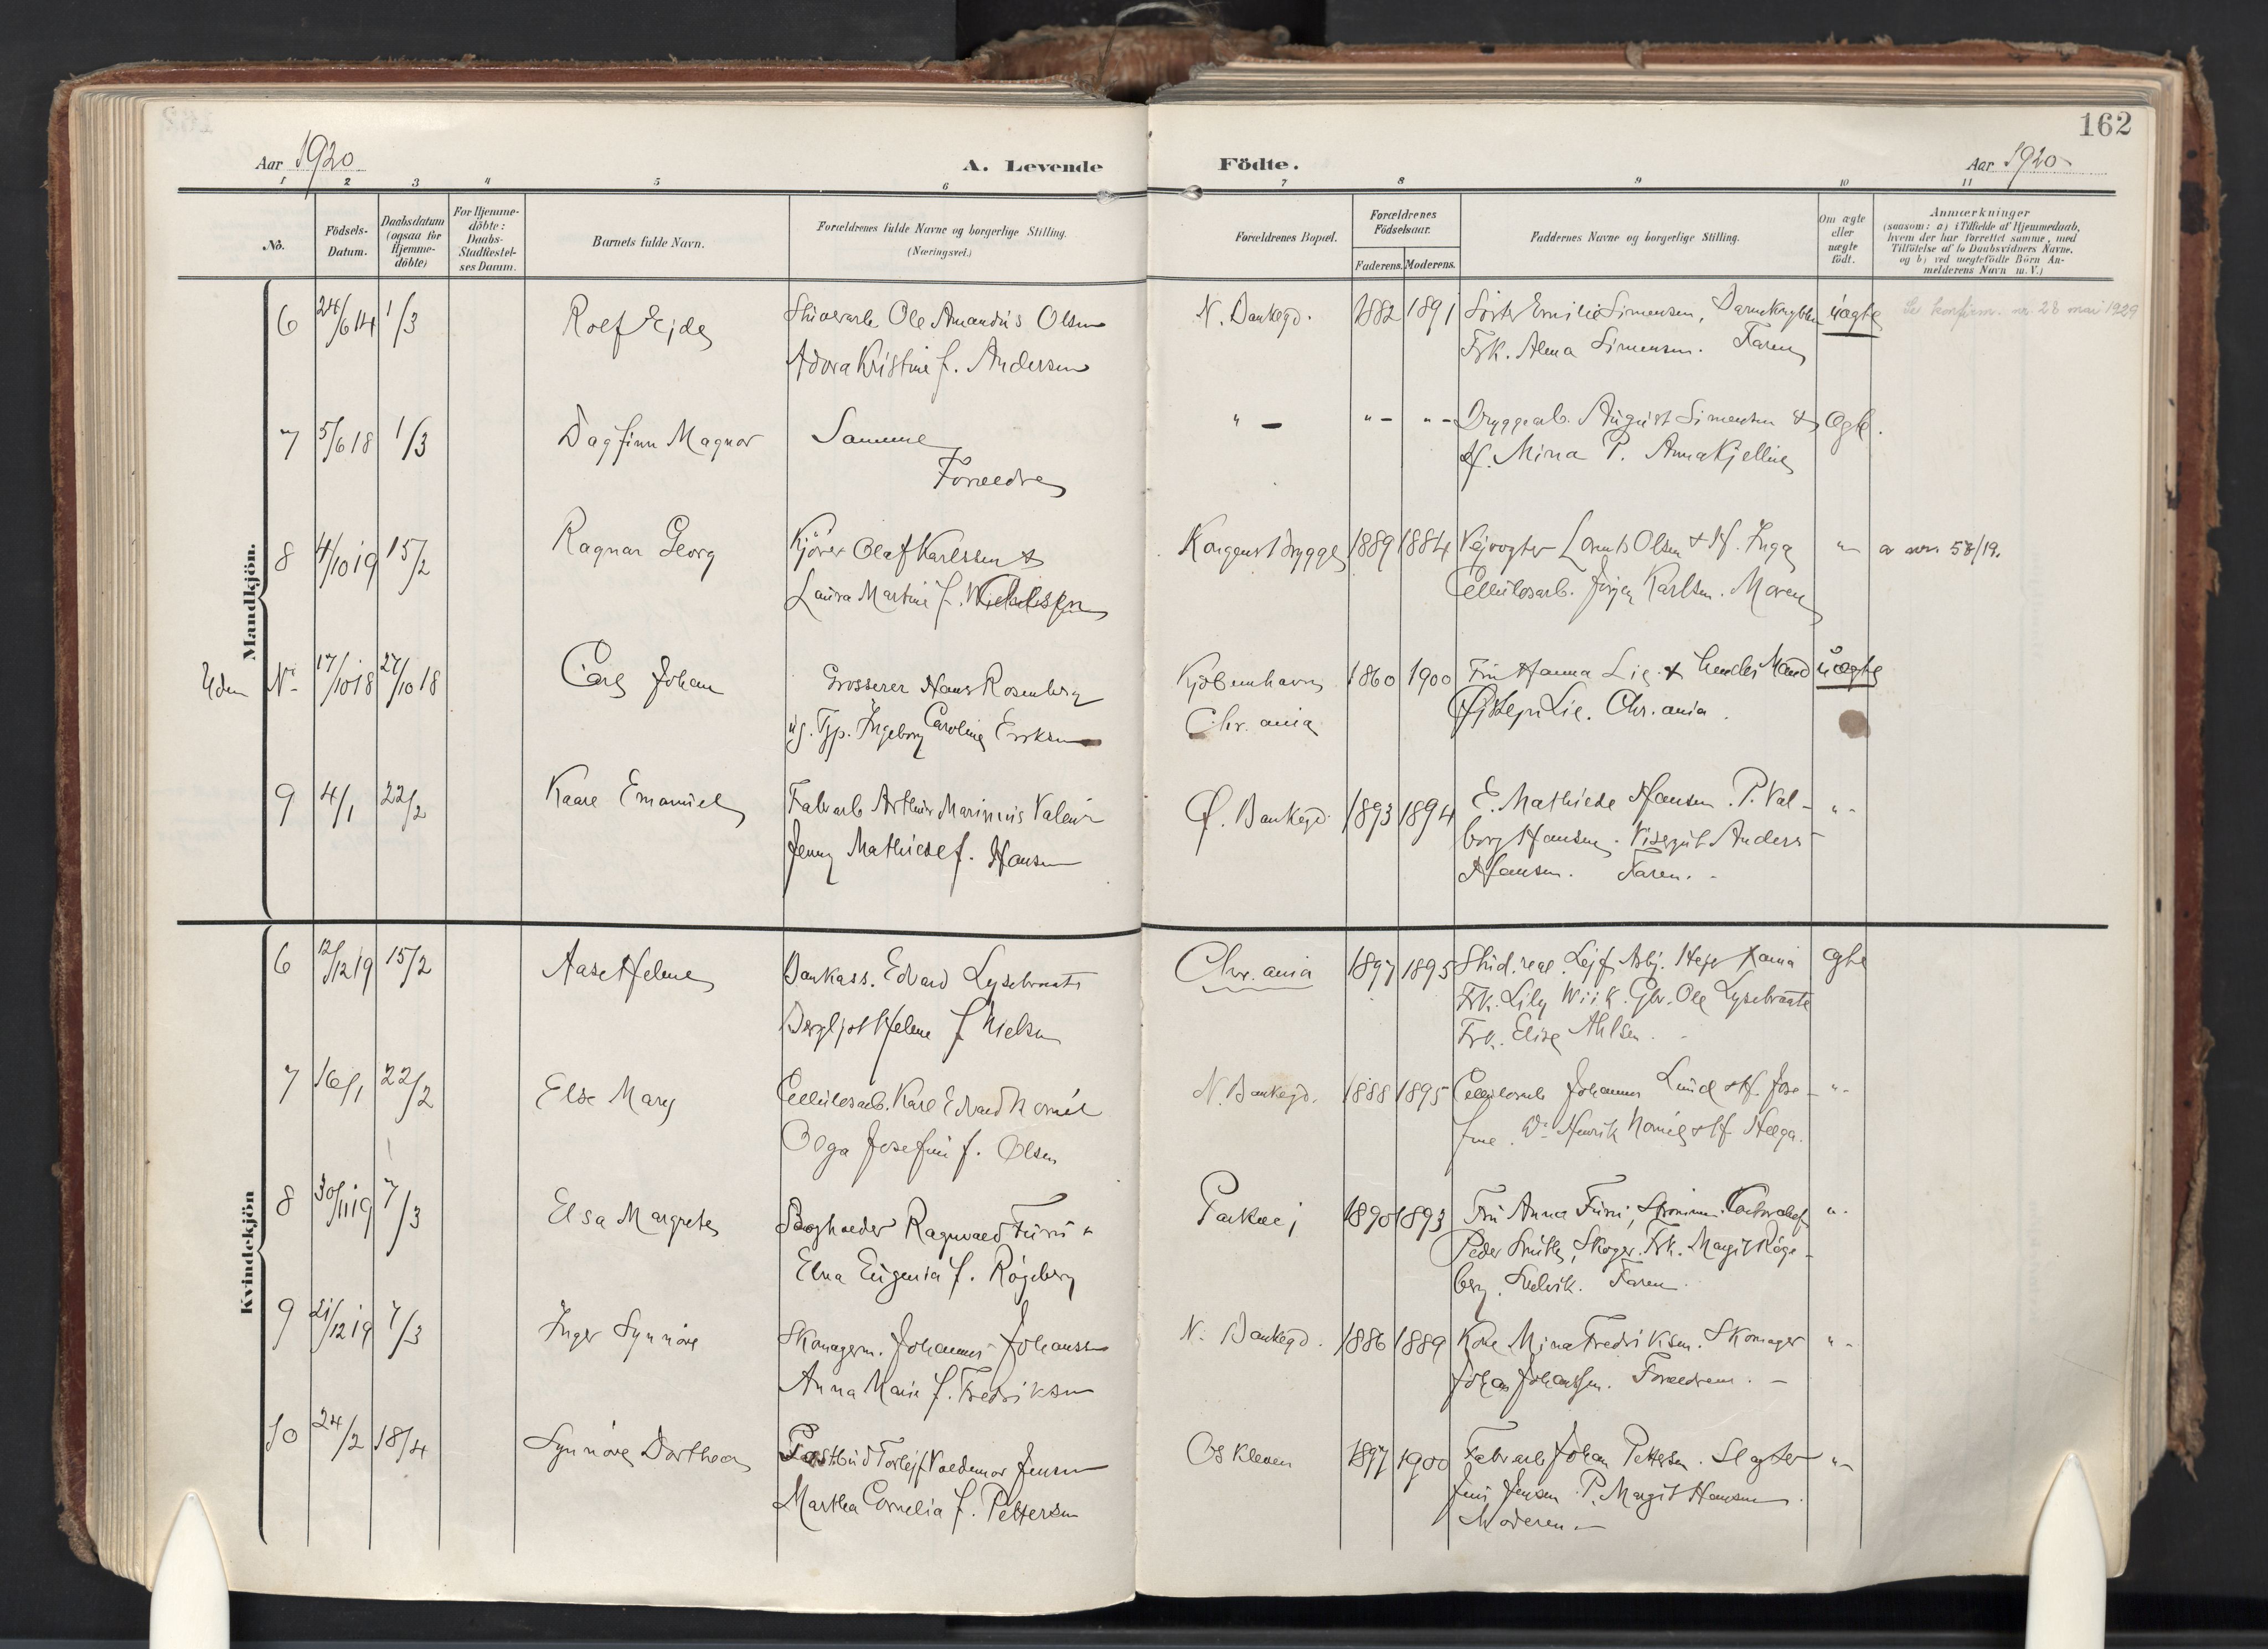 162
Aar 1920
A. Levende
Födte.
Aar 1920
1 2 3 4 5 6 7 8 9 10 11
No.
Födsels-
Datum.
Daabsdatum
(ogsaa for
Hjemme-
döbte)
For Hjemme-
döbte:
Daabs-
Stadfestel-
ses Datum.
Barnets fulde Navn.
Forældrenes fulde Navne og borgerlige Stilling.
(Næringsvei.)
Forældrenes Bopæl.
Forældrenes
Födselsaar.
Faderens. Moderens.
Faddernes Navne og borgerlige Stilling.
Om ægte
eller
uægte
födt.
Anmærkninger
(saasom: a) i Tilfælde af Hjemmedaab,
hvem der har forrettet samme, med
Tilföielse af to Daabsvidners Navne,
og b) ved uægtefödte Börn An-
melderens Navn m. V.)
Mandkjön.
6 24/6 14 1/3 Rolf Ejde Ole Amandus Olsen N. Bankegd. 1882 1891 Emilie Simensen, uægte
Adora Kristine f. Andersen Frk. Alma Simensen. Faren
7 5/6 18 1/3 Dagfinn Magnar Samme " - " - " - Bryggearb. August Simensen & ægte.
Forældre Hf. Mina P. Anna Kjelline
8 4/10 19 15/2 Ragnar Georg Kjörer Olaf Karlssen & Kongens Brygge 1889 1884 Vejvogter Lorents Olsen & Hf. Inga " a nr. 58/19.
Laura Martine f. Cellulosearb. Karlsen. Moren
Uden No 17/10 18 27/10 18 Carl Johan Grosserer Hans Rosenberg Kjøbenhavn 1860 1900 Fru Hanna Lie & hendes Mand uægte
ug. Typ. Ingeborg Caroline Eriksen Chr.ania Lie. Chr.ania.
9 4/1 22/2 Kaare Emanuel Fabrarb Arthur Marinius Ø. Bankegd. 1893 1894 E. Mathilde Hansen. P. Val- "-
Jenny Mathilde f. Hansen borg Hansen. Visergut Anders
Hansen. Faren.
Kvindekjön
6 12/12 19 15/2 Aase Helene Bankass. Edvard Lysebraate Chr.ania 1897 1895 Stud. real. Lejf Asbj. ægte
Bergljot Helene f Nielsen Frk. Lily Wiik. Ole Lysebraate
Frk. Elise Ahlsen.
7 16/1 22/2 Else Mary Cellulosearb. Karl Edvard N. Bankegd. 1888 1895 Cellulosearb Johannes Lund & Hf. Jose- "-
Olga Josefine f. Olsen fine. Do Henrik & Hf Helga.
8 30/11 19 7/3 Elsa Margrete Bogholder Ragnvald Furu " Parkvej 1890 1893 Fru Anna Furu, "
Elna Eugenia f. Røgeberg Peder Smith, Skoger. Frk. Margit Røge-
berg. Faren.
9 21/12 19 7/3 Inger Synnöve Skomagerm. Johannes Johanssen N. Bankegd. 1886 1889 Kone Mina Fredriksen. Skomager "-
Anna Marie f. Fredriksen Johan Johanssen. Forældrene.
10 24/2 18/4 Synnöve Dorthea Postbud Torlejf Valdemar Jensen Oskleven 1897 1900 Fabrarb Johan Pettersen. Slagter "-
Martha Cornelia f. Pettersen Jensen. P. Margit Hansen.
Moderen.